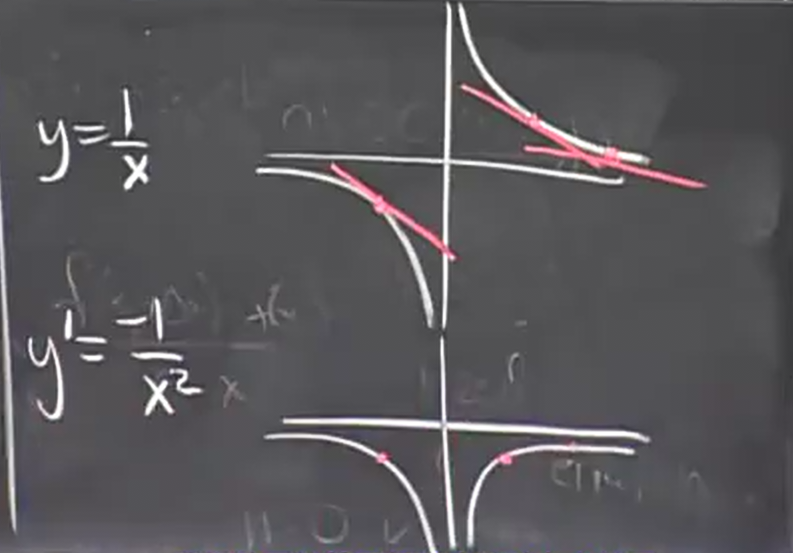 y = 1/x
y' = -1/x²